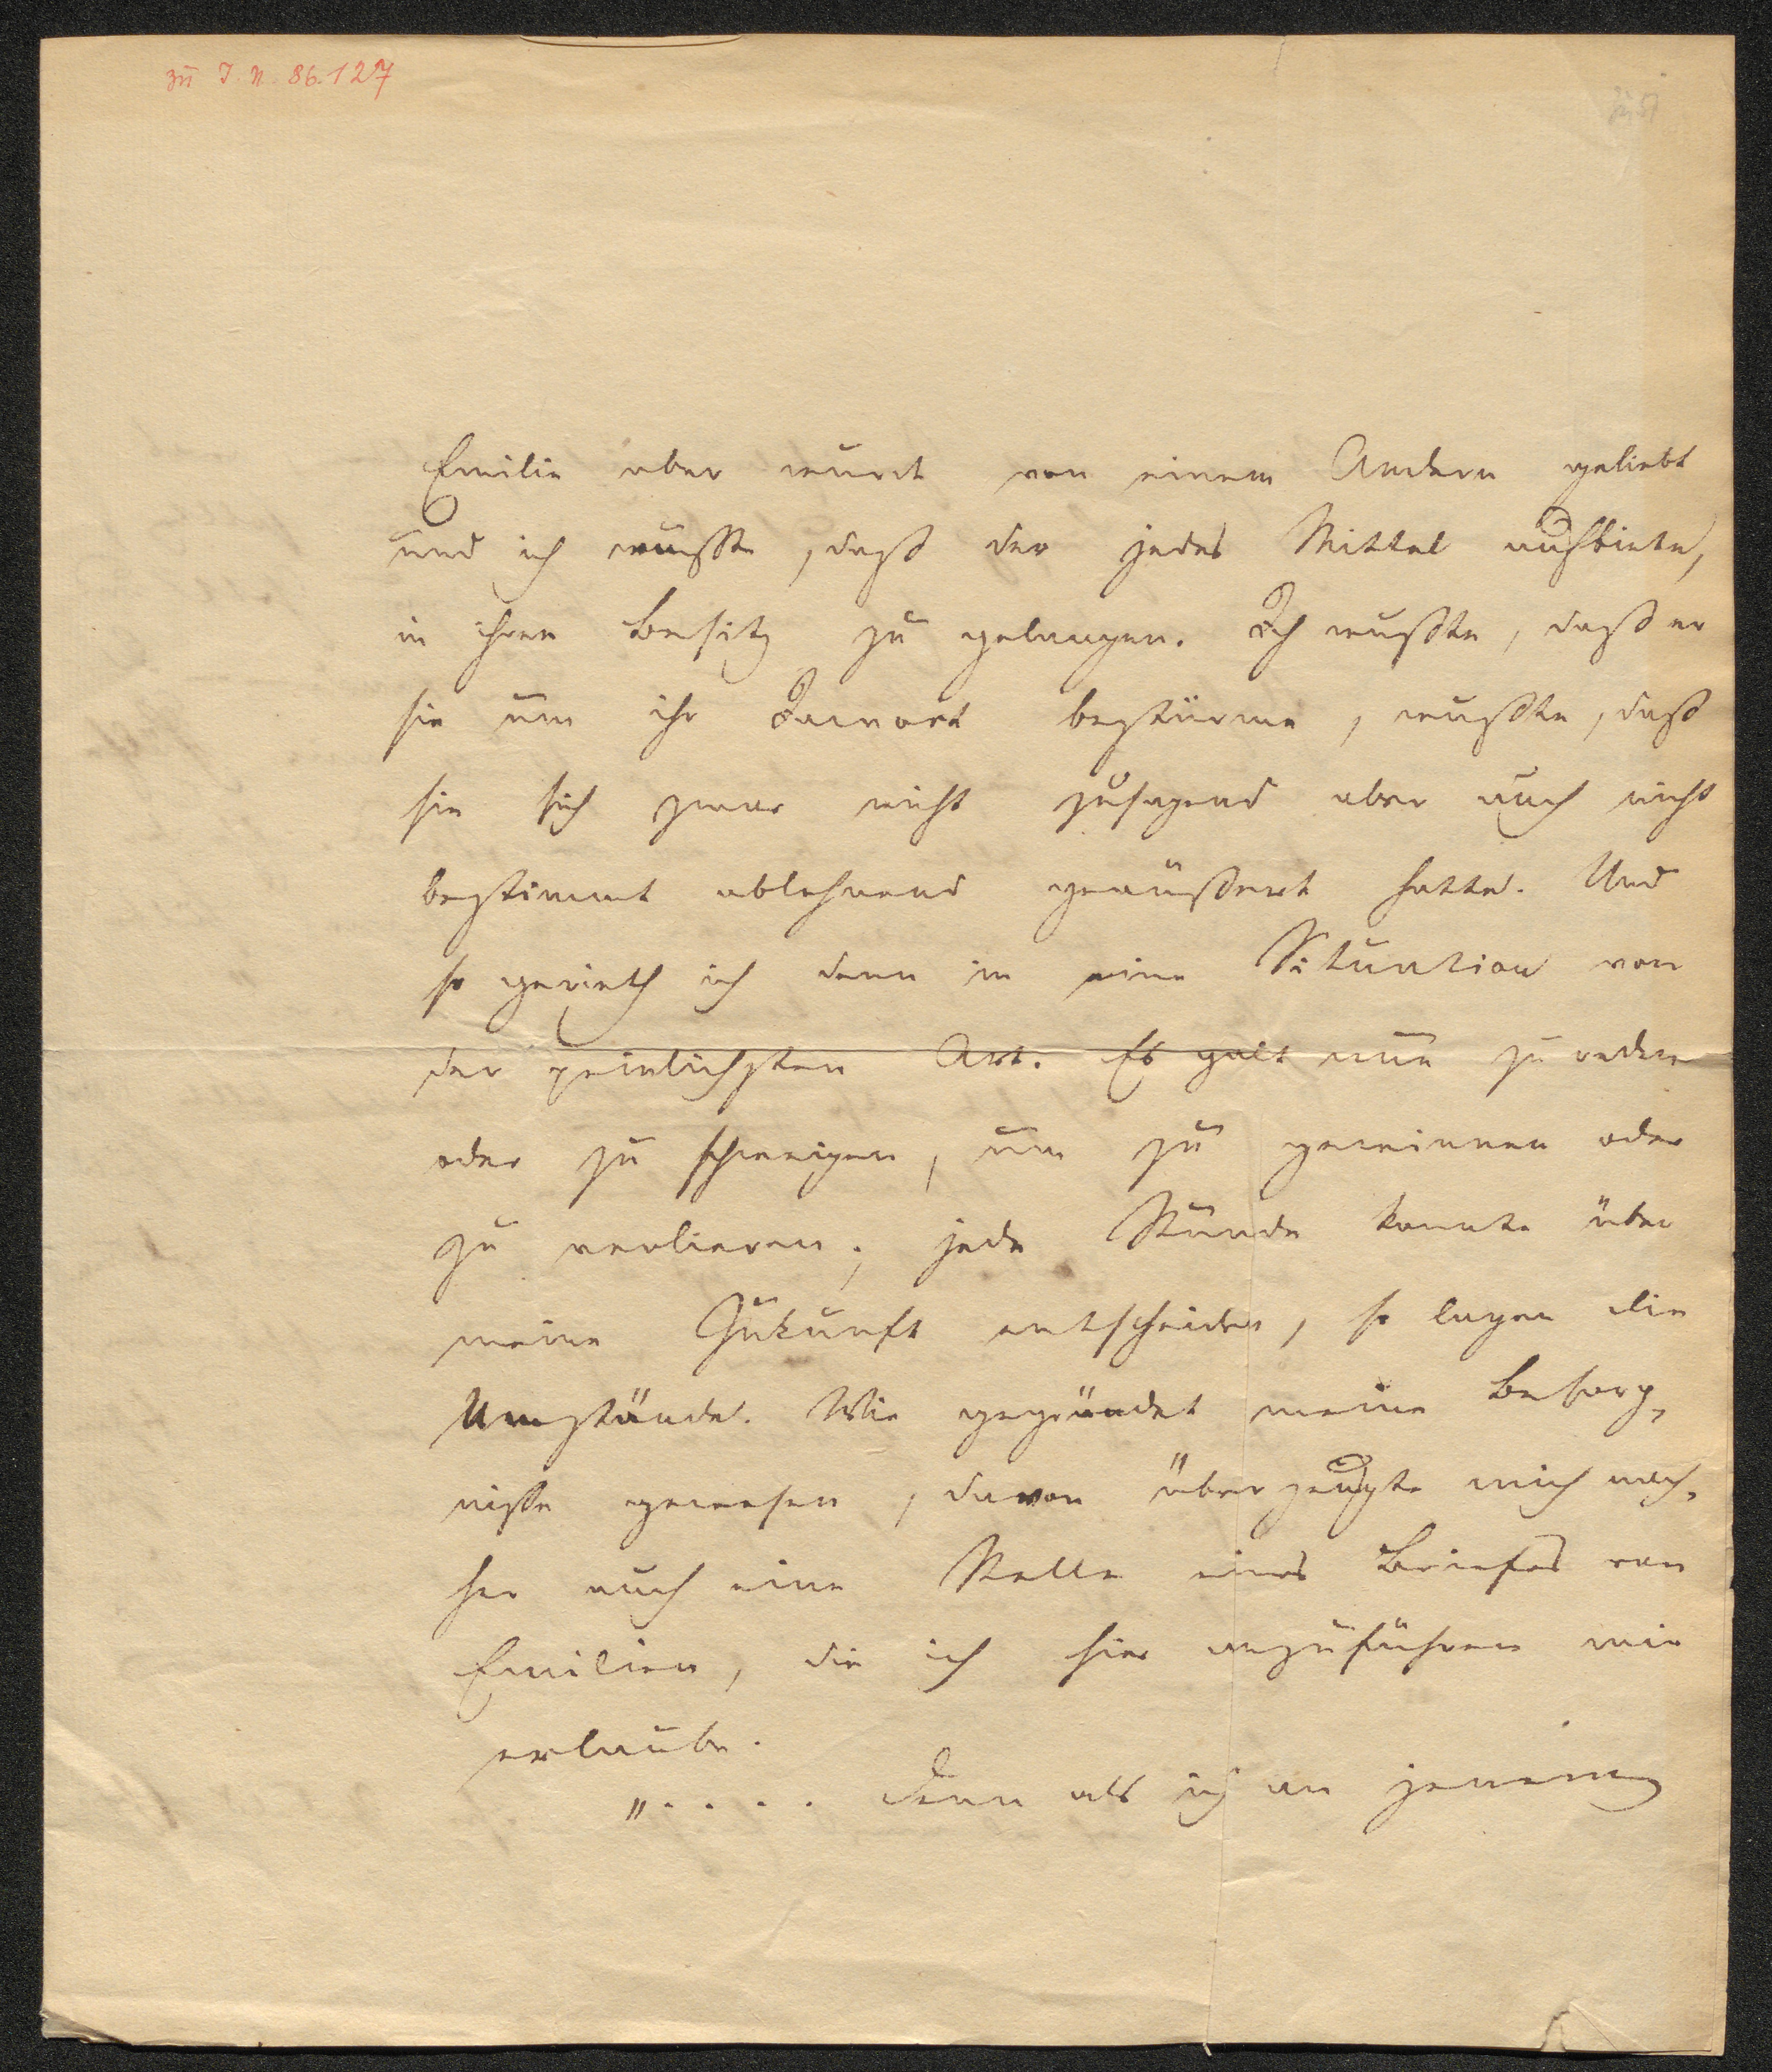 zu I. N. 86.127
Emilie aber wurde von einem Andern geliebt
und ich wußte, daß der jedes Mittel aufbiete,
in ihren Besitz zu gelangen. Ich wußte, daß er
sie um ihr Jawort bestürme, wußte, daß
sie sich zwar nicht zusagend aber auch nicht
bestimmt ablehnend geäußert hatte. Und
so gerieth ich denn in eine Situation von
der peinlichsten Art. Es galt nun zu reden
oder zu schweigen, um zu gewinnen oder
zu verlieren; jede Stunde konnte über
meine Zukunft entscheiden, so lagen die
Umstände. Wie gegründet meine Besorg-
nisse gewesen, davon überzeugte mich nach-
her auch eine Stelle eines Briefes von
Emilien, die ich hier anzuführen mir
erlaube.
„. . . . Denn als ich an jenem